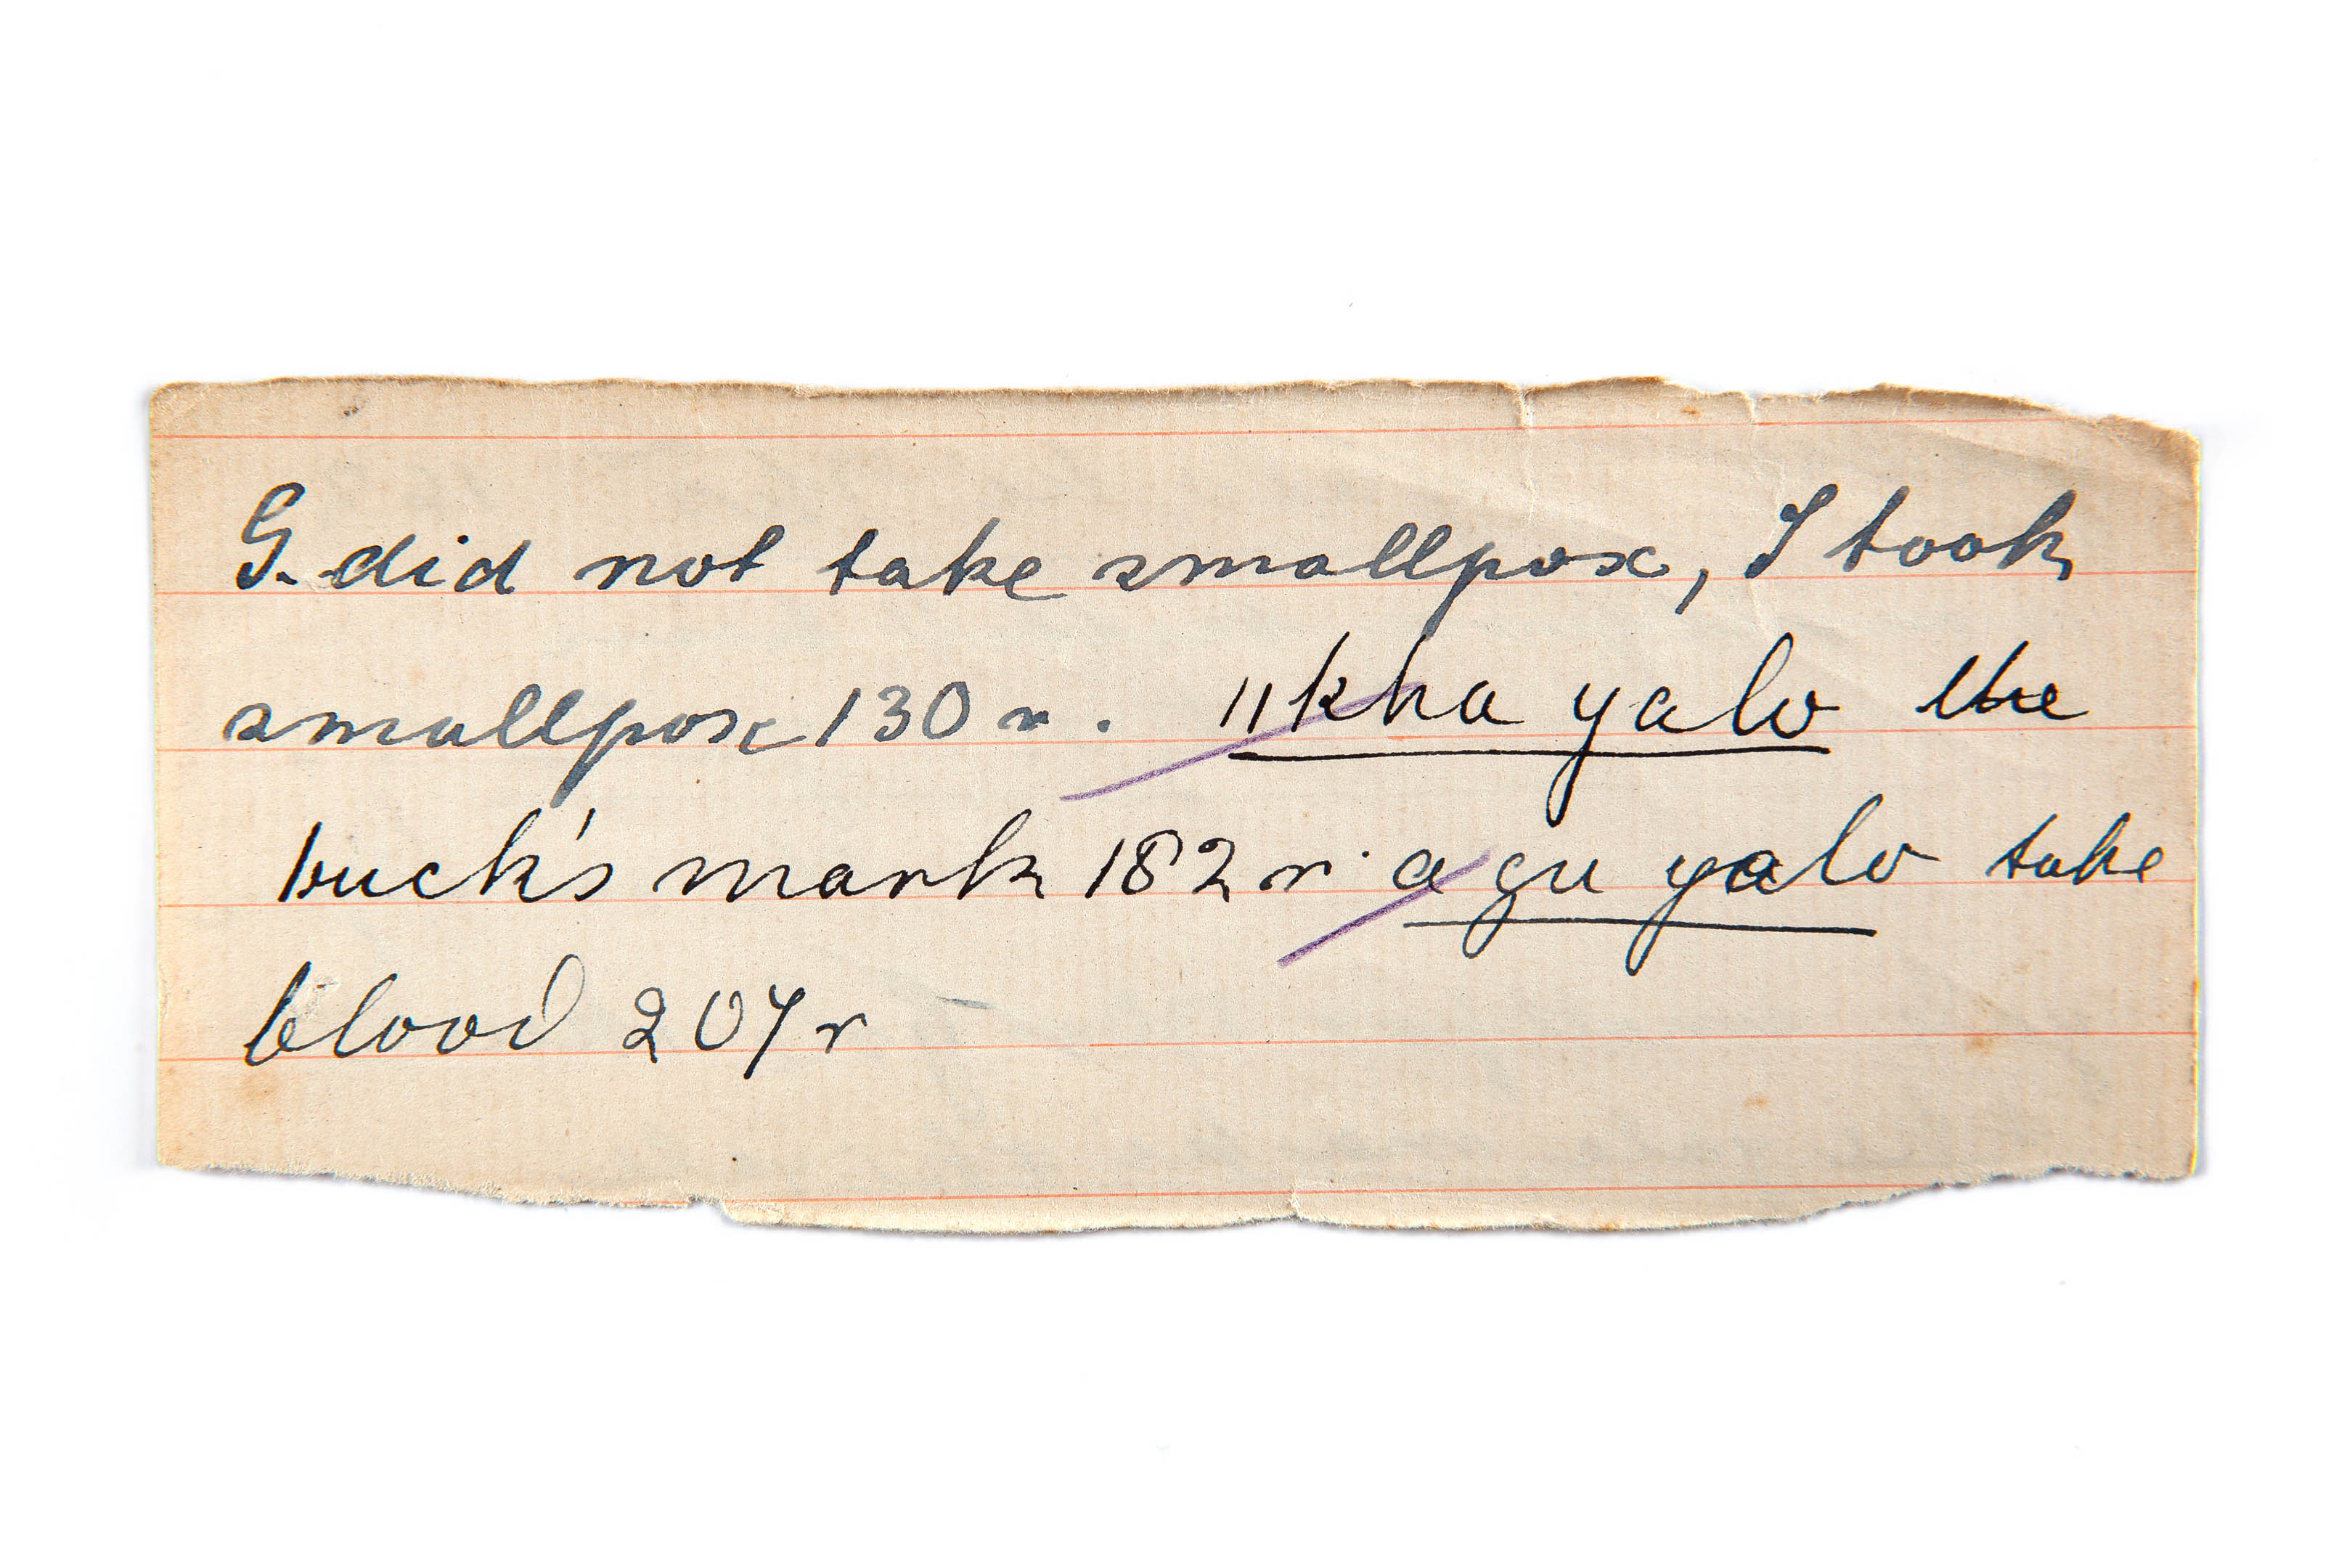 G. did not take smallpox, I took
smallpox 130 r. ||kha yalo the
buck's mark 182 r. a gu yalo take
blood 207 r